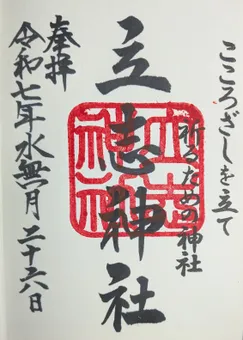 こころざしを立て
祈るための神社
立志神社
立志神社
奉拝
令和七年水無月二十六日